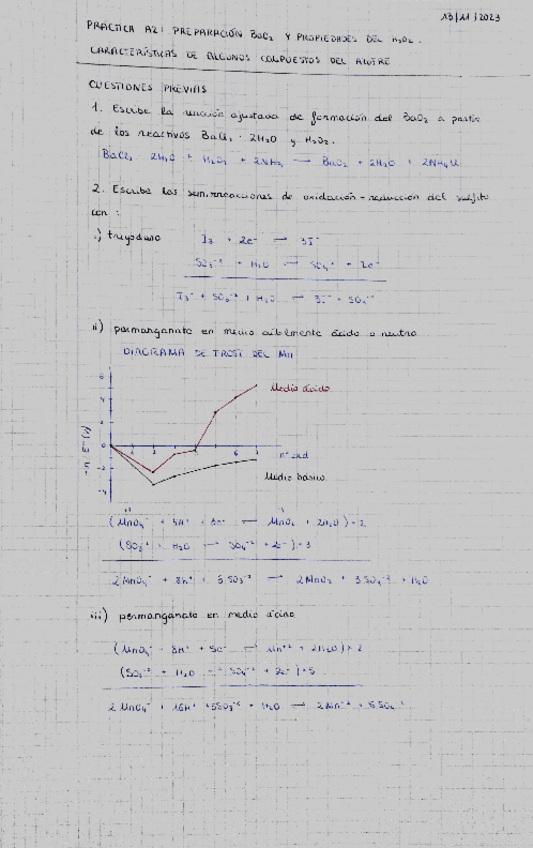 13/11/2023
PRÁCTICA A2: PREPARACIÓN BaO₂ Y PROPIEDADES DEL H₂O₂.
CARACTERÍSTICAS DE ALGUNOS COMPUESTOS DEL AZUFRE
CUESTIONES PREVIAS
1. Escribe la reacción ajustada de formación del BaO₂ a partir
de los reactivos BaCl₂ · 2H₂O y H₂O₂.
BaCl₂ 2H₂O + H₂O₂ + 2NH₃ → BaO₂ + 2H₂O + 2NH₄Cl
2. Escribe las semirreacciones de oxidación-reducción del sulfito
con:
i) triyoduro
I₃⁻ + 2e⁻ → 3I⁻
SO₃⁻² + H₂O → SO₄⁻² + 2e⁻
I₃⁻ + SO₃⁻² + H₂O → 3I⁻ + SO₄⁻²
ii) permanganato en medio débilmente ácido o neutro
DIAGRAMA DE FROST DEL Mn
6
4
2
0
-2
-4
-n E° (V)
6
7
nº oxid
Medio ácido
Medio básico
(MnO₄⁻ + 3e⁻ → MnO₂ + 2H₂O) · 2
(SO₃⁻² + H₂O → SO₄⁻² + 2e⁻) · 3
2MnO₄⁻ + 8H⁺ + 3SO₃⁻² → 2MnO₂ + 3SO₄⁻² + H₂O
iii) permanganato en medio ácido
(MnO₄⁻ 8H⁺ + 5e⁻ → Mn⁺² + 2H₂O) × 2
(SO₃⁻² + H₂O → SO₄⁻² + 2e⁻) × 5
2MnO₄⁻ + 16H⁺ + 5SO₃⁻² + H₂O → 2Mn⁺² + 5SO₄⁻²